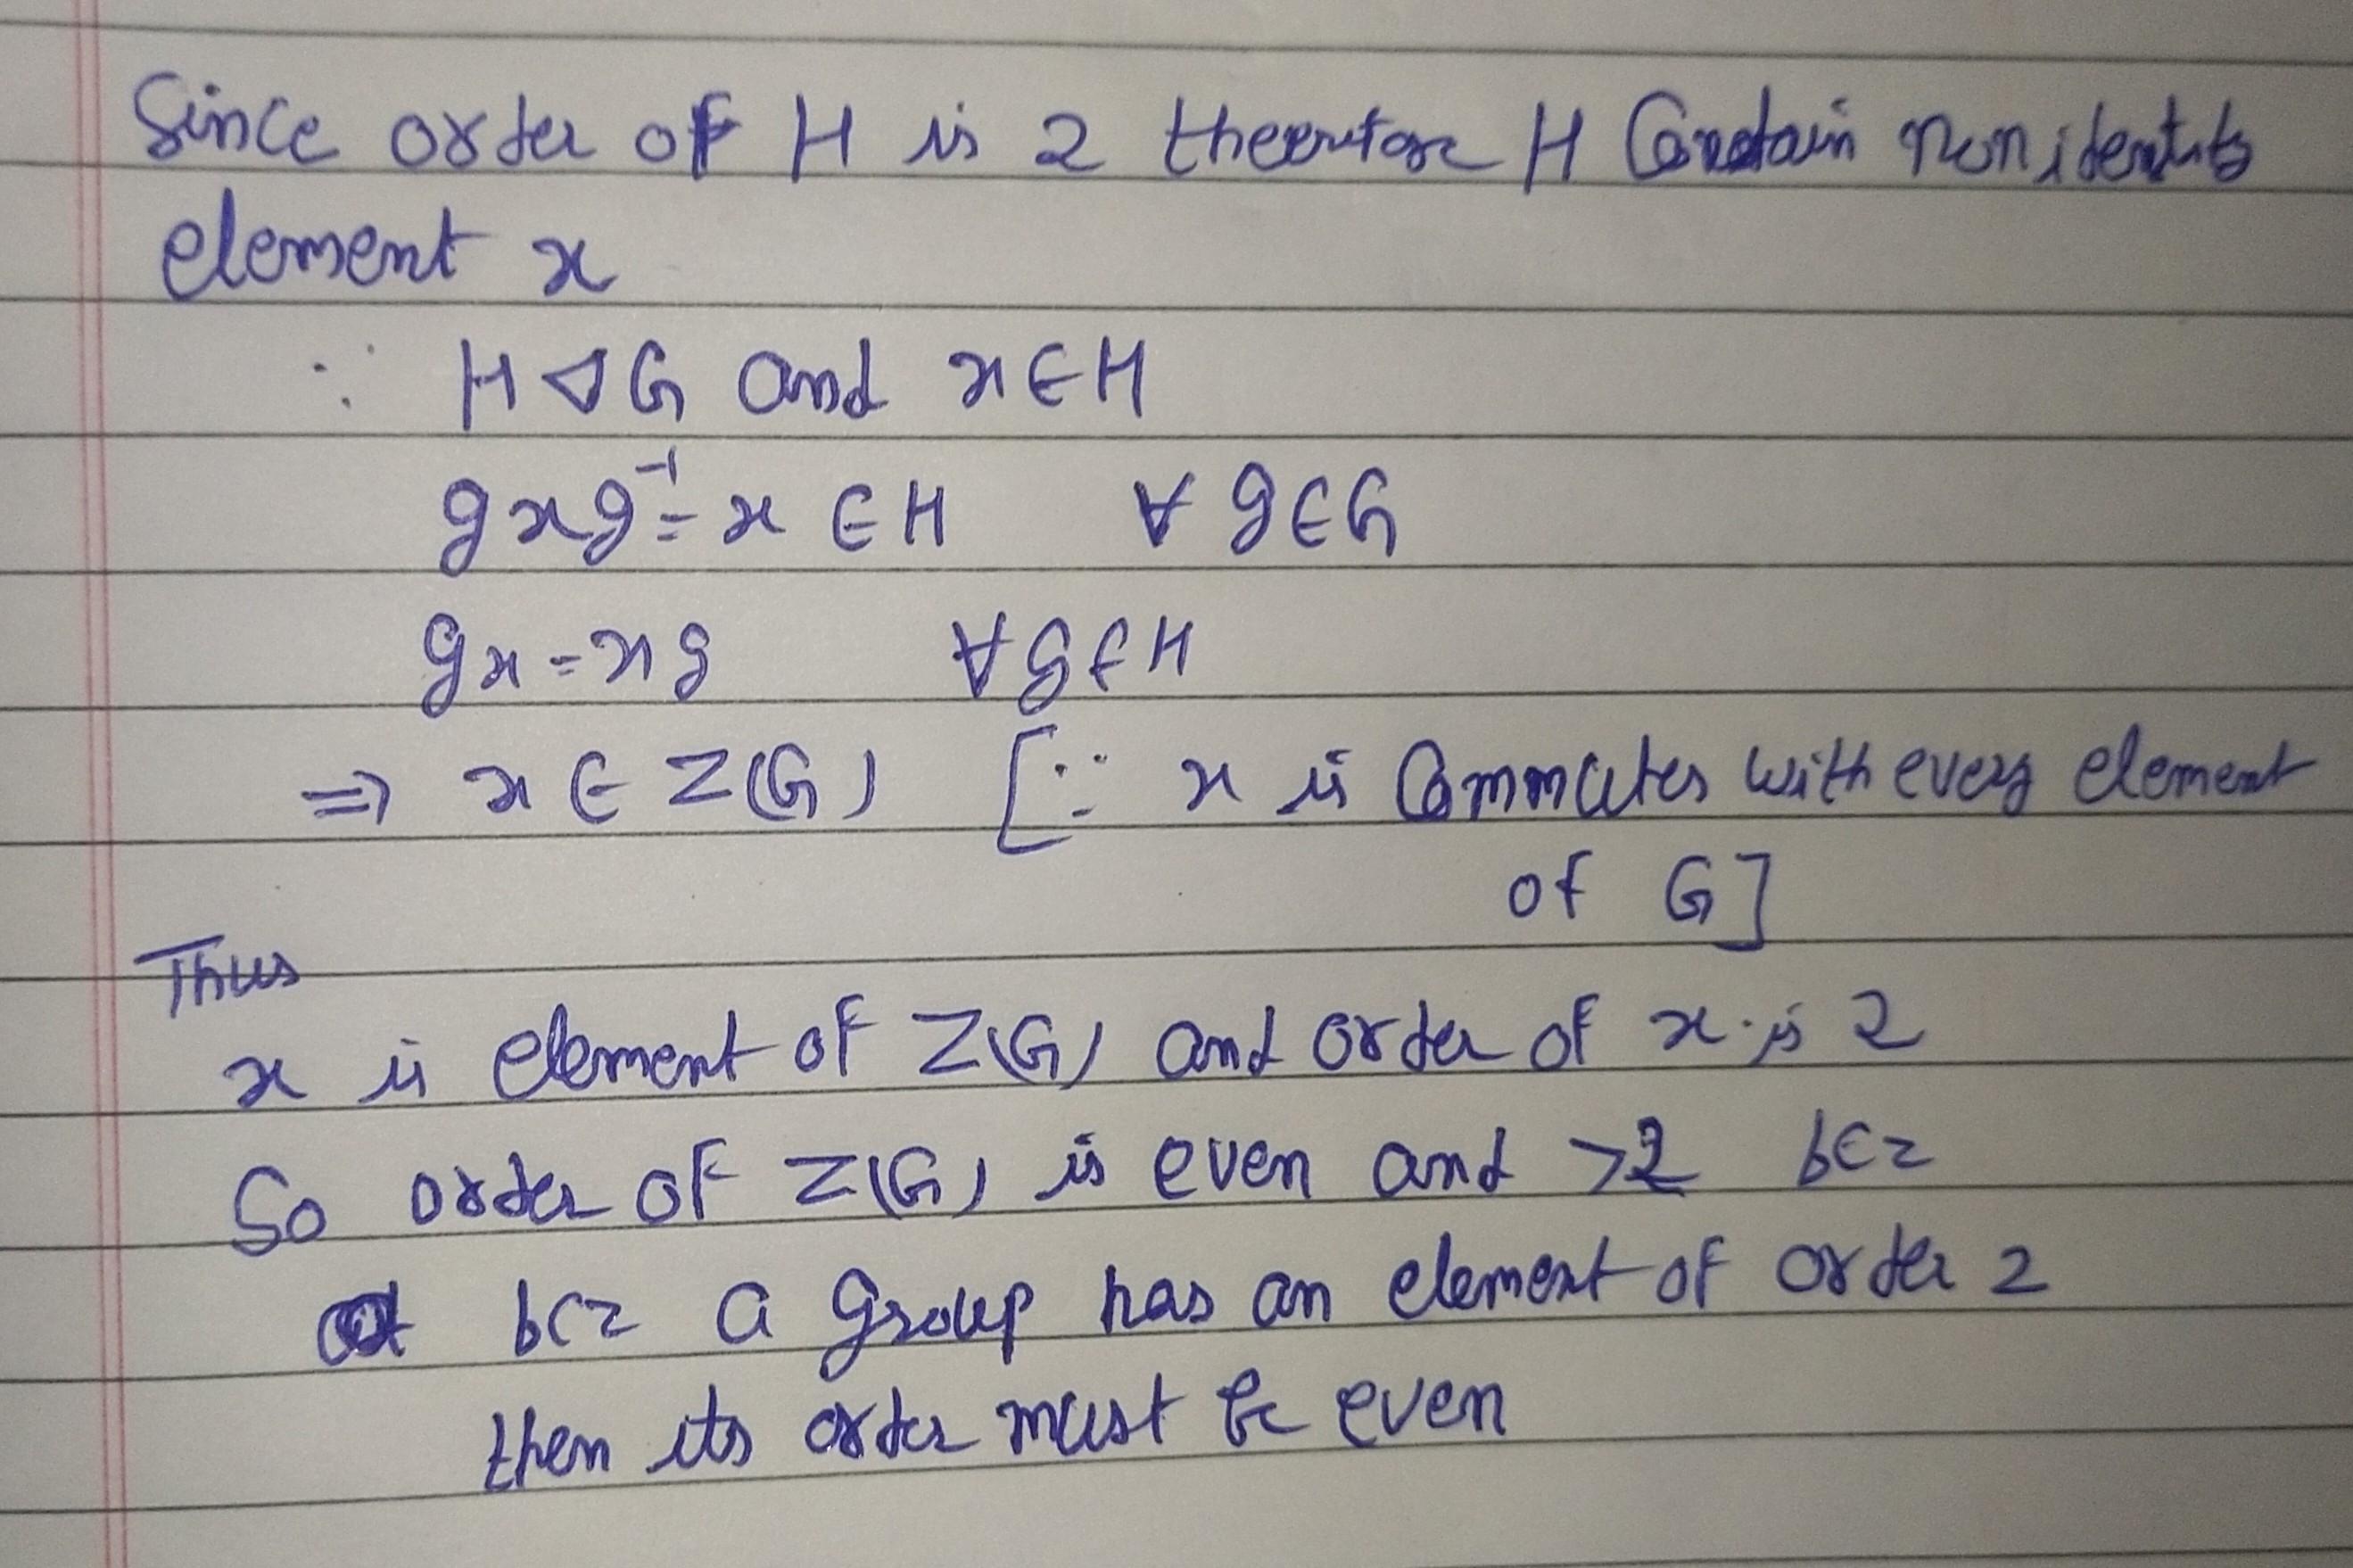 Since order of H is 2 therefore H Contain non identity
element x
∵ H ⊲ G and x ∈ H
gxg⁻¹ = x ∈ H ∀ g ∈ G
gx = xg ∀ g ∈ H
⇒ x ∈ Z(G) [∵ x is Commutes with every element
of G]
Thus
x is element of Z(G) and order of x is 2
So order of Z(G) is even and >2 bcz
bcz a group has an element of order 2
then its order must be even